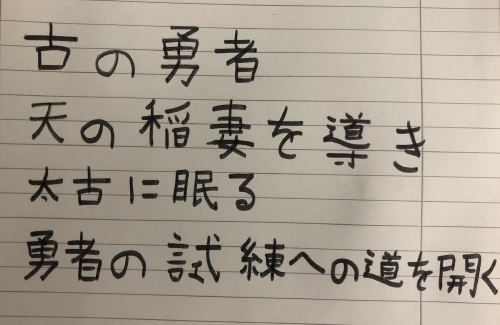 古の勇者
天の稲妻を導き
太古に眠る
勇者の試練への道を開く